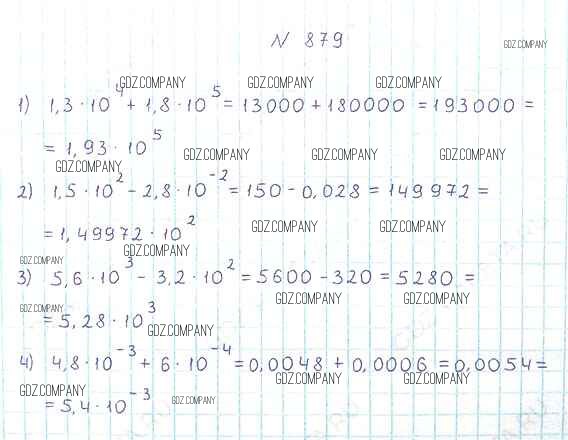 N 879
GDZ.COMPANY
GDZ.COMPANY GDZ.COMPANY GDZ.COMPANY
1) 1,3 · 10⁴ + 1,8 · 10⁵ = 13000 + 180000 = 193000 =
= 1,93 · 10⁵
GDZ.COMPANY GDZ.COMPANY GDZ.COMPANY GDZ.COMPANY
2) 1,5 · 10² - 2,8 · 10⁻² = 150 - 0,028 = 149 972 =
= 1,49972 · 10²
GDZ.COMPANY GDZ.COMPANY
GDZ.COMPANY GDZ.COMPANY
3) 5,6 · 10³ - 3,2 · 10² = 5600 - 320 = 5280 =
GDZ.COMPANY GDZ.COMPANY GDZ.COMPANY
= 5,28 · 10³
GDZ.COMPANY
4) 4,8 · 10⁻³ + 6 · 10⁻⁴ = 0,0048 + 0,0006 = 0,0054 =
GDZ.COMPANY GDZ.COMPANY GDZ.COMPANY
= 5,4 · 10⁻³
GDZ.COMPANY